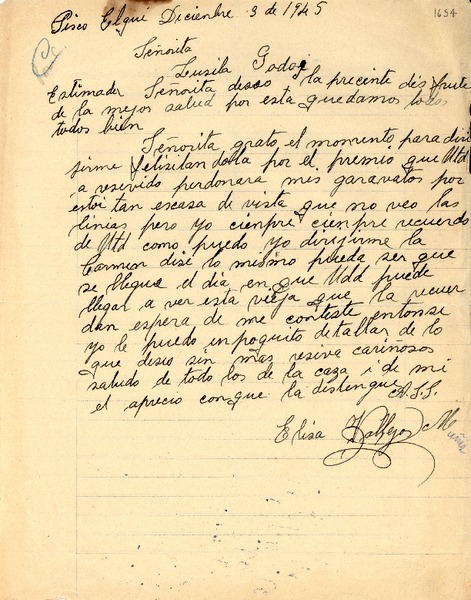 1654
Pisco Elqui Diciembre 3 de 1945
Señoita
Lusila Godoi
Estimada Señoita deseo la precinte disfrute
de la mejor salud por esta quedamos todos
todos bien
Señorita grato el momunto para diri
jirme felisitandola por el premio que Utd
a reservido perdonara mis garavatos por
estoi tan escasa de vista que no veo las
linias pero yo cienpre cienpre recuerdo
de Utd como puedo yo dirijirme la
Carmen dise lo mismo pueda ser que
se llegue el dia en que Udd puede
llegar a ver esta vieja que la recuer
dan espera de me conteste entonse
yo le puedo inpoquito detallar de lo
que deseo sin mas resiva cariñosos
saludo de todo los de la caza i de mi
el aprecio con que la distengue A.S.S.
Elisa Kallejos M